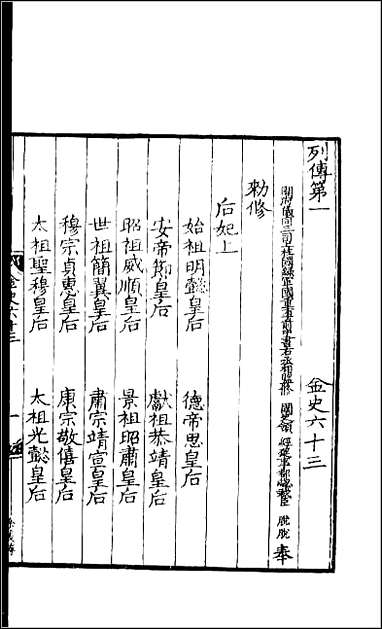 列傳第一 金史六十三
開府儀同三司上柱國錄軍國重事前中書右丞相監修國史領經筵事都總裁臣脫脫奉
勑修
后妃上
始祖明懿皇后 德帝思皇后
安帝節皇后 獻祖恭靖皇后
昭祖威順皇后 景祖昭肅皇后
世祖簡翼皇后 肅宗靖宣皇后
穆宗貞惠皇后 康宗敬僖皇后
太祖聖穆皇后 太祖光懿皇后
金史六十三 一